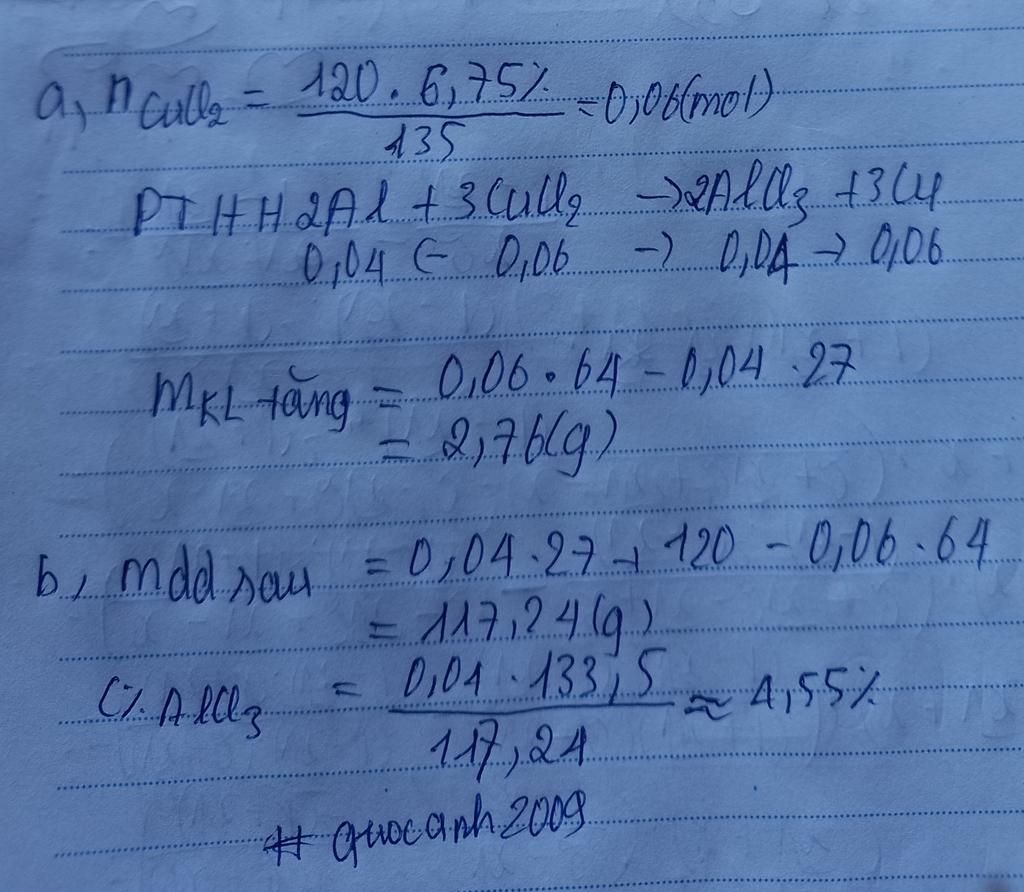 a, nCuCl2 = 120 . 6,75% / 135 = 0,06(mol)
PTHH 2Al + 3CuCl2 → 2AlCl3 + 3Cu
0,04 ← 0,06 → 0,04 → 0,06
mKL tăng = 0,06 . 64 - 0,04 . 27
= 2,76(g)
b, mdd sau = 0,04 . 27 + 120 - 0,06 . 64
= 117,24(g)
C%AlCl3 = 0,04 . 133,5 / 117,24 ≈ 4,55%
# quocanh2009